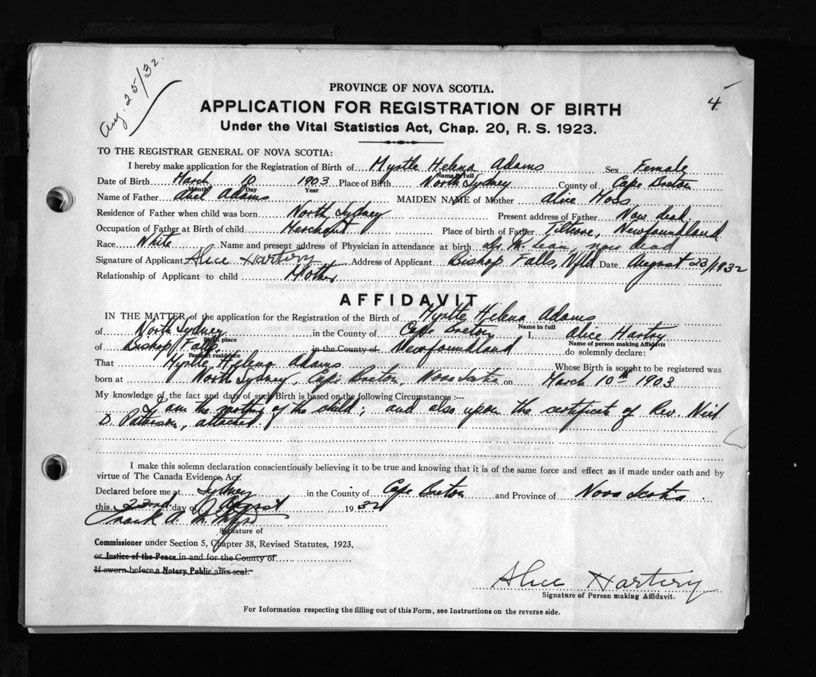 Aug. 25/32
4
PROVINCE OF NOVA SCOTIA.
APPLICATION FOR REGISTRATION OF BIRTH
Under the Vital Statistics Act, Chap. 20, R. S. 1923.
TO THE REGISTRAR GENERAL OF NOVA SCOTIA:
I hereby make application for the Registration of Birth of Myrtle Helena Adams Sex Female
Name in full
Date of Birth March 10 1903 Place of Birth North Sydney County of Cape Breton
Month Day Year
Name of Father Adams MAIDEN NAME of Mother Alice
Residence of Father when child was born North Sydney Present address of Father Now dead.
Occupation of Father at Birth of Child Merchant Place of birth of Father Newfoundland
Race White Name and present address of Physician in attendance at birth Dr. now dead
Signature of Applicant Alice Hartery Address of Applicant Bishop Falls, Nfld Date August 23/1932
Relationship of Applicant to child Mother
AFFIDAVIT
IN THE MATTER of the application for the Registration of the Birth of Myrtle Helena Adams
Name in full
of North Sydney in the County of Cape Breton I, Alice Hartry
Birth place
Name of person making Affidavit
of Bishop Falls in the County of Newfoundland do solemnly declare:
Present residence
That Myrtle Helena Adams Whose Birth is sought to be registered was
born at North Sydney, Cape Breton, Nova Scotia on March 10th 1903
My knowledge of the fact and date of such Birth is based on the following Circumstances :—
I am the mother of the child; and also upon the certificate of Rev.
D. Patterson, attached.
I make this solemn declaration conscientiously believing it to be true and knowing that it is of the same force and effect as if made under oath and by
virtue of The Canada Evidence Act.
Declared before me at Sydney in the County of Cape Breton and Province of Nova Scotia.
this 23rd day of August 1932
Frank
Signature of
Commissioner under Section 5, Chapter 38, Revised Statutes, 1923,
or Justice of the Peace in and for the County of
If sworn before a Notary Public affix seal.
Alice Hartery
Signature of Person making Affidavit.
For Information respecting the filling out of this Form, see Instructions on the reverse side.